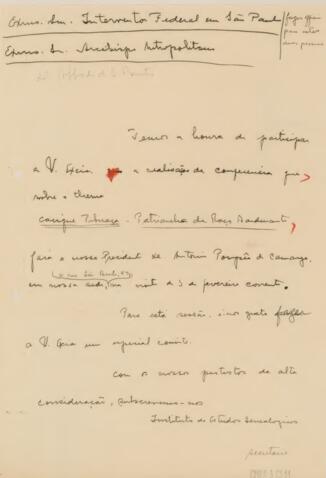 Exmo. Snr. Interventor Federal em São Paulo
Exmo. Sr. Arcebispo Metropolitano
fazer officios
para estes
dois
S. Bento
Temos a honra de participar
a V. Excia. a realisação da conferencia que
sobre o thema
Cacique Tibiriçá - Patriarcha da Raça Bandeirante,
fará o nosso Presidente
em nossa sede, na noite de 3 de fevereiro corrente.
Para esta sessão, é-nos grato fazer
a V. Excia um especial convite.
Com os nossos protestos da alta
consideração, subscrevemo-nos
Instituto de Estudos Genealogicos
secretario